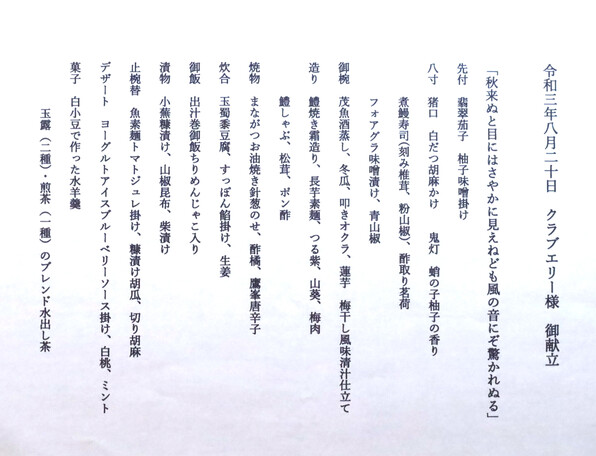 令和三年八月二十日　クラブエリー様　御献立
「秋来ぬと目にはさやかに見えねども風の音にぞ驚かれぬる」
先付　翡翠茄子　柚子味噌掛け
八寸　猪口　白だつ胡麻かけ　鬼灯　蛸の子柚子の香り
煮鰻寿司(刻み椎茸、粉山椒)、酢取り茗荷
フォアグラ味噌漬け、青山椒
御椀　茂魚酒蒸し、冬瓜、叩きオクラ、蓮芋　梅干し風味清汁仕立て
造り　鱧焼き霜造り、長芋素麺、つる紫、山葵、梅肉
鱧しゃぶ、松茸、ポン酢
焼物　まながつお油焼き針葱のせ、酢橘、鷹峯唐辛子
炊合　玉蜀黍豆腐、すっぽん餡掛け、生姜
御飯　出汁巻御飯ちりめんじゃこ入り
漬物　小蕪糠漬け、山椒昆布、柴漬け
止椀替　魚素麺トマトジュレ掛け、糠漬け胡瓜、切り胡麻
デザート　ヨーグルトアイスブルーベリーソース掛け、白桃、ミント
菓子　白小豆で作った水羊羹
玉露（二種）・煎茶（一種）のブレンド水出し茶